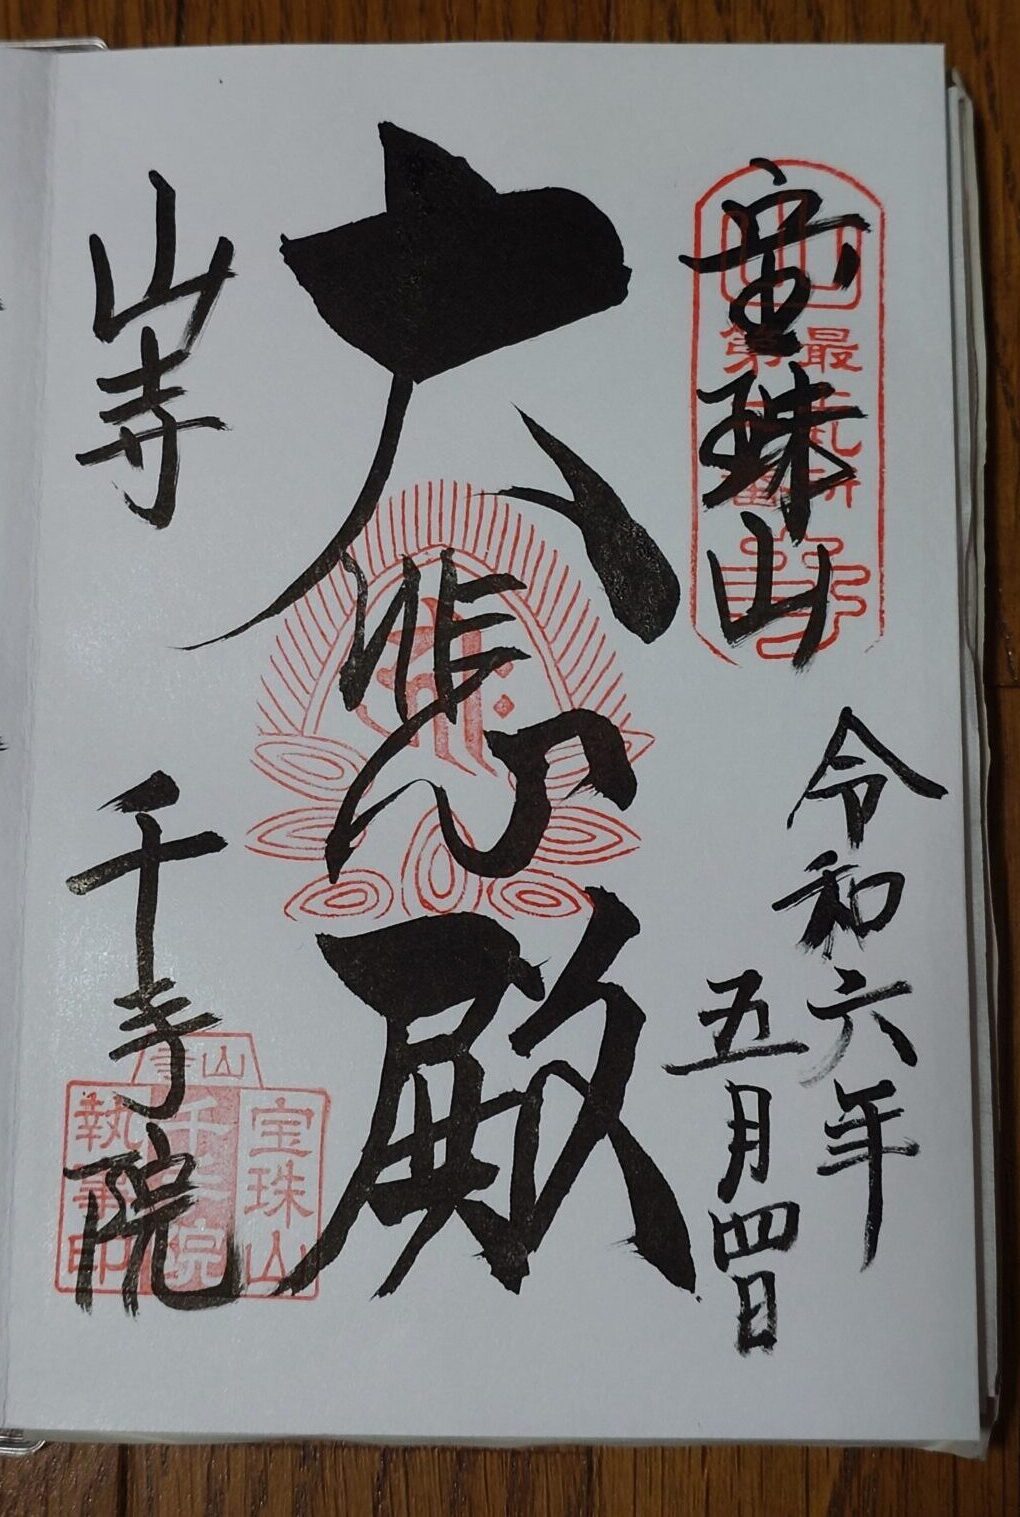 宝珠山
令和六年
五月四日
大悲殿
山寺
千手院
最上札所
第二番
山寺
宝珠山
千手院
執事印